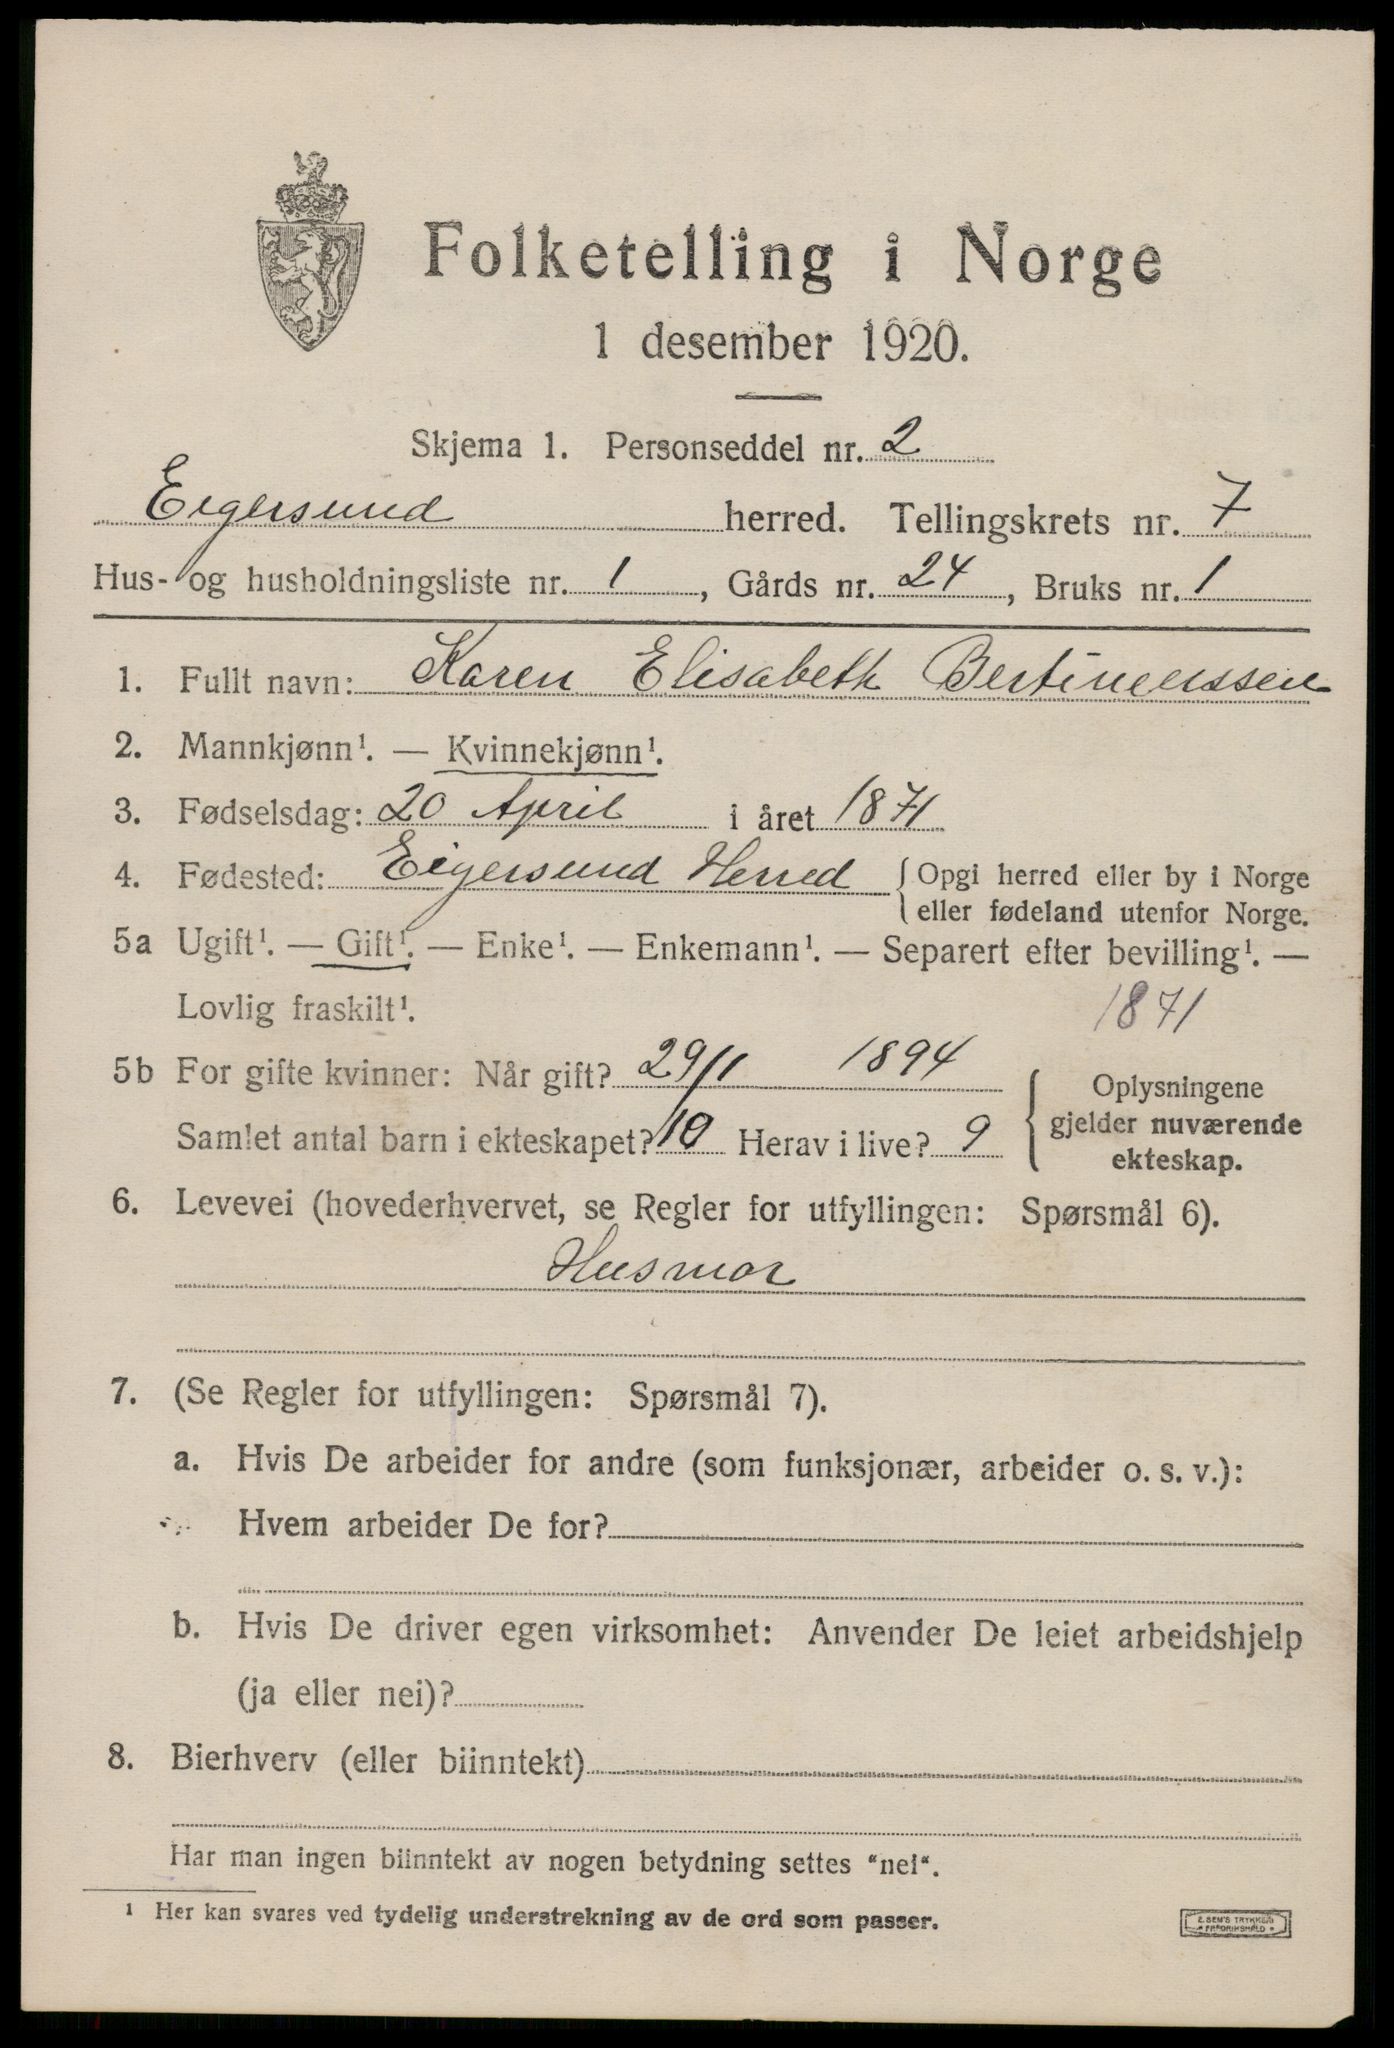 Folketelling i Norge
1 desember 1920.
Skjema 1. Personseddel nr. 2
Eigersund herred. Tellingskrets nr. 7
Hus- og husholdningsliste nr. 1, Gårds nr. 24, Bruks nr. 1
1. Fullt navn: Karen Elisabeth Bertinenssen
2. Mannkjønn¹. — Kvinnekjønn¹.
3. Fødselsdag: 20 April i året 1871
4. Fødested: Eigersund Herred { Opgi herred eller by i Norge
eller fødeland utenfor Norge.
5a Ugift¹. — Gift¹. — Enke¹. — Enkemann¹. — Separert efter bevilling¹. —
Lovlig fraskilt¹. 1871
5b For gifte kvinner: Når gift? 29/1 1894
Samlet antal barn i ekteskapet? 10 Herav i live? 9
{ Oplysningene
gjelder nuværende
ekteskap.
6. Levevei (hovederhvervet, se Regler for utfyllingen: Spørsmål 6).
Husmor
7. (Se Regler for utfyllingen: Spørsmål 7).
a. Hvis De arbeider for andre (som funksjonær, arbeider o. s. v.):
Hvem arbeider De for?
b. Hvis De driver egen virksomhet: Anvender De leiet arbeidshjelp
(ja eller nei)?
8. Bierhverv (eller biinntekt)
Har man ingen biinntekt av nogen betydning settes "nei".
¹ Her kan svares ved tydelig understrekning av de ord som passer.
E. SEM'S TRYKKERI
FREDRIKSHALD